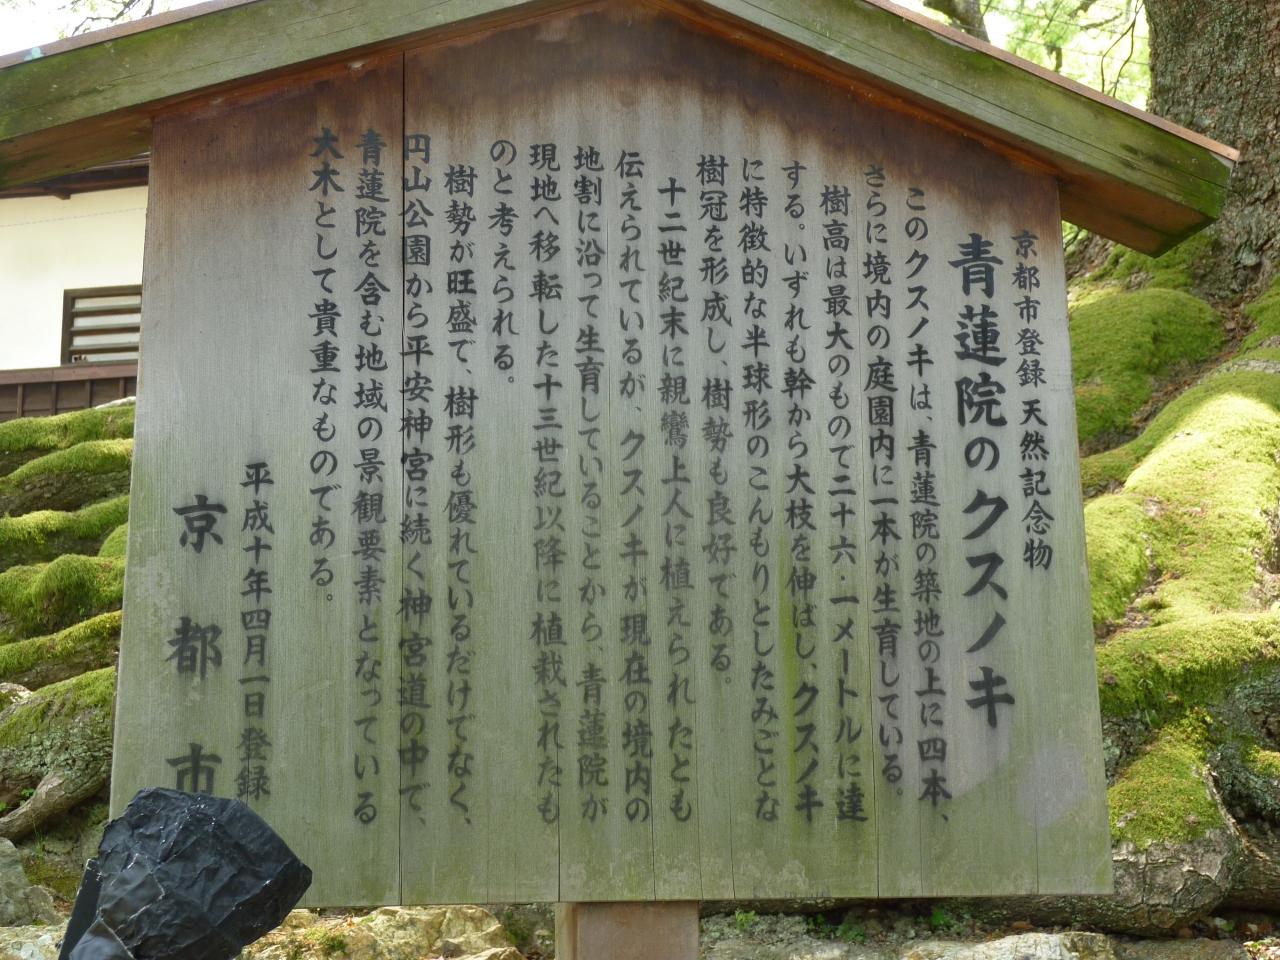 京都市登録天然記念物
青蓮院のクスノキ
このクスノキは、青蓮院の築地の上に四本、
さらに境内の庭園内に一本が生育している。
樹高は最大のもので二十六・一メートルに達
する。いずれも幹から大枝を伸ばし、クスノキ
に特徴的な半球形のこんもりとしたみごとな
樹冠を形成し、樹勢も良好である。
十二世紀末に親鸞上人に植えられたとも
伝えられているが、クスノキが現在の境内の
地割に沿って生育していることから、青蓮院が
現地へ移転した十三世紀以降に植栽されたも
のと考えられる。
樹勢が旺盛で、樹形も優れているだけでなく、
円山公園から平安神宮に続く神宮道の中で、
青蓮院を含む地域の景観要素となっている
大木として貴重なものである。
平成十年四月一日登録
京都市